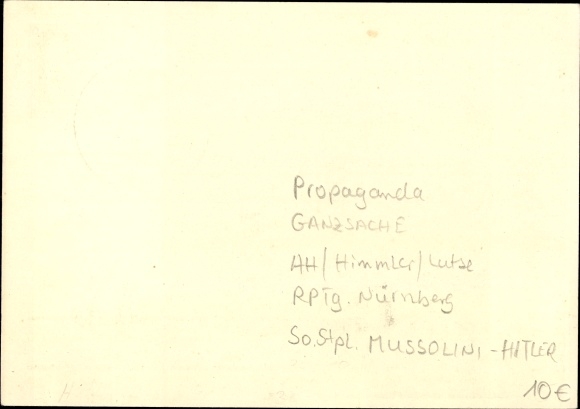 Propaganda
GANZSACHE
AH/Himmler/Lutze
RPTg. Nürnberg
So.Stpl. MUSSOLINI-HITLER
10€